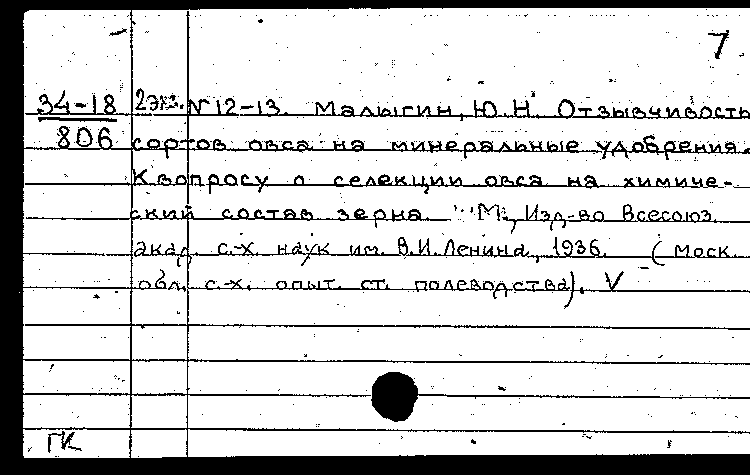 7
34-18 2экз. № 12-13. Малыгин, Ю.Н. Отзывчивость
806 сортов овса на минеральные удобрения.
К вопросу о селекции овса на химиче-
ский состав зерна. М., Изд-во Всесоюз.
акад. с.-х. наук им. В.И. Ленина, 1936. (Моск.
обл. с.-х. опыт. ст. полеводства). V
ГК